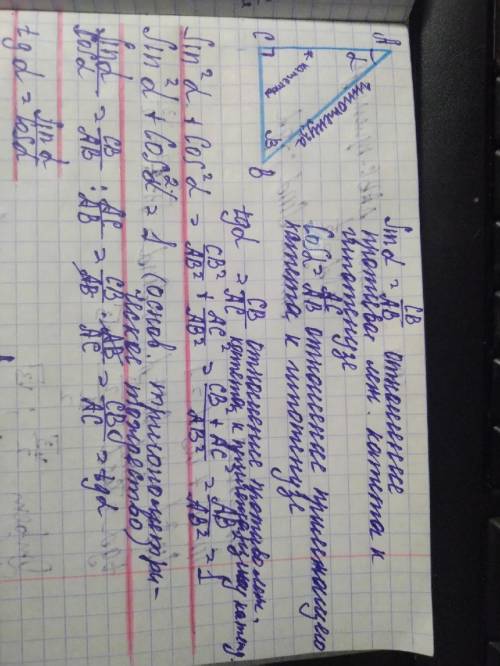 A
α
гипотенуза
катеты
C
β
B
Sinα = CB/AB отношение
противолеж. катета к
гипотенузе
Cosα = AC/AB отношение прилежащего
катета к гипотенузе
tgα = CB/AC отношение противолеж.
катета к прилежащему катету.
Sin²α + Cos²α = CB²/AB² + AC²/AB² = CB² + AC²/AB² = AB²/AB² = 1
Sin²α + Cos²α = 1 (основ. тригонометри-
ческое тождество)
Sinα/Cosα = CB/AB : AC/AB = CB/AB · AB/AC = CB/AC = tgα
tgα = Sinα/Cosα